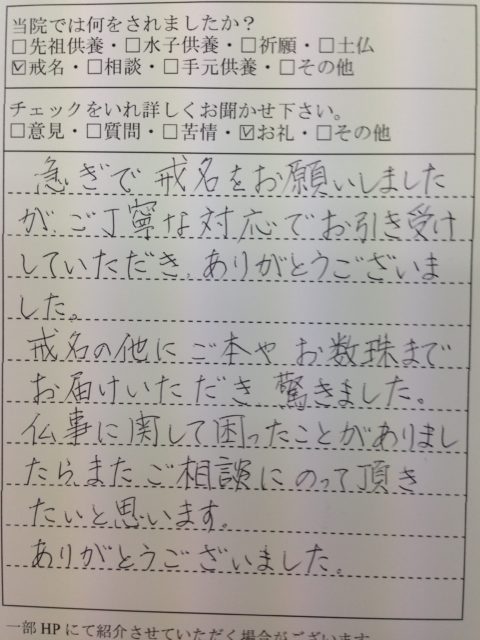 当院では何をされましたか？
□先祖供養・□水子供養・□祈願・□土仏
☑戒名・□相談・□手元供養・□その他
チェックをいれ詳しくお聞かせ下さい。
□意見・□質問・□苦情・☑お礼・□その他
急ぎで戒名をお願いしました
が、ご丁寧な対応でお引き受け
していただき、ありがとうございま
した。
戒名の他にご本やお数珠まで
お届けいただき驚きました。
仏事に関して困ったことがありまし
たら、またご相談にのって頂き
たいと思います。
ありがとうございました。
一部HPにて紹介させていただく場合がございます